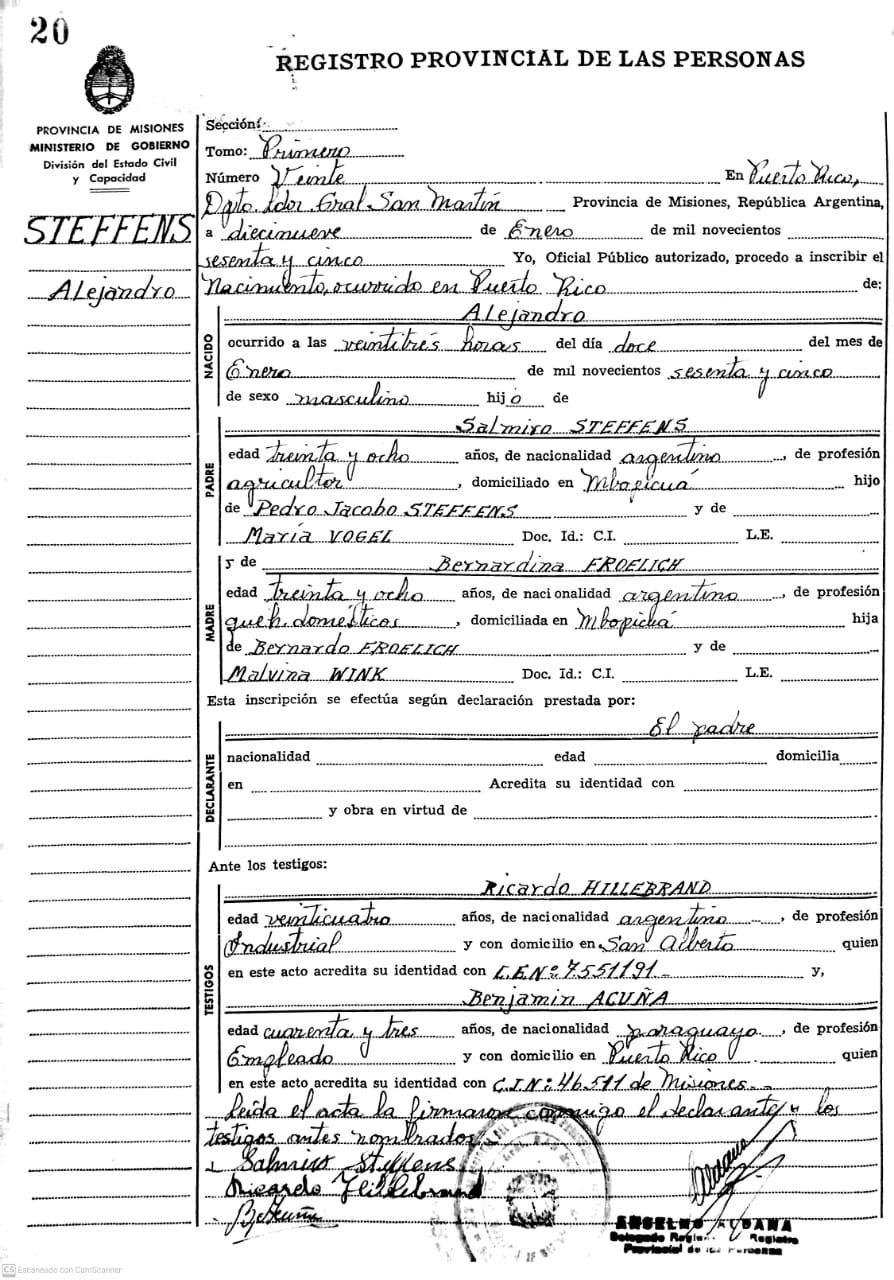 20
REGISTRO PROVINCIAL DE LAS PERSONAS
PROVINCIA DE MISIONES
MINISTERIO DE GOBIERNO
División del Estado Civil
y Capacidad
STEFFENS
Alejandro
Sección:
Tomo: Primero
Número Veinte En Puerto Rico,
Dpto. Ldor. Gral. San Martín Provincia de Misiones, República Argentina,
a diecinueve de Enero de mil novecientos
sesenta y cinco Yo, Oficial Público autorizado, procedo a inscribir el
Nacimiento, ocurrido en Puerto Rico de:
NACIDO
Alejandro
ocurrido a las veintitrés horas del día doce del mes de
Enero de mil novecientos sesenta y cinco
de sexo masculino hijo de
PADRE
Salmiro STEFFENS
edad treinta y ocho años, de nacionalidad argentino, de profesión
agricultor, domiciliado en Mbopicuá hijo
de Pedro Jacobo STEFFENS y de
María VOGEL Doc. Id.: C.I. L.E.
MADRE
y de Bernardina FROELICH
edad treinta y ocho años, de nacionalidad argentino, de profesión
queh. domésticos, domiciliada en Mbopichá hija
de Bernardo FROELICH y de
Malvina WINK Doc. Id.: C.I. L.E.
Esta inscripción se efectúa según declaración prestada por:
DECLARANTE
El padre
nacionalidad edad domicilia
en Acredita su identidad con
y obra en virtud de
Ante los testigos:
TESTIGOS
Ricardo HILLEBRAND
edad veinticuatro años, de nacionalidad argentino, de profesión
Industrial y con domicilio en San Alberto quien
en este acto acredita su identidad con L.E.Nº: 7.551191- y,
Benjamin ACUÑA
edad cuarenta y tres años, de nacionalidad paraguayo, de profesión
Empleado y con domicilio en Puerto Rico quien
en este acto acredita su identidad con C.I.Nº: 46.511 de Misiones.-
Leída el acta la firmaron conmigo el declarante y los
testigos antes nombrados
Salmiro Steffens
Ricardo Hillebrand
B. Acuña
Delegado Registro
Provincial de las Personas
CS Escaneado con CamScanner